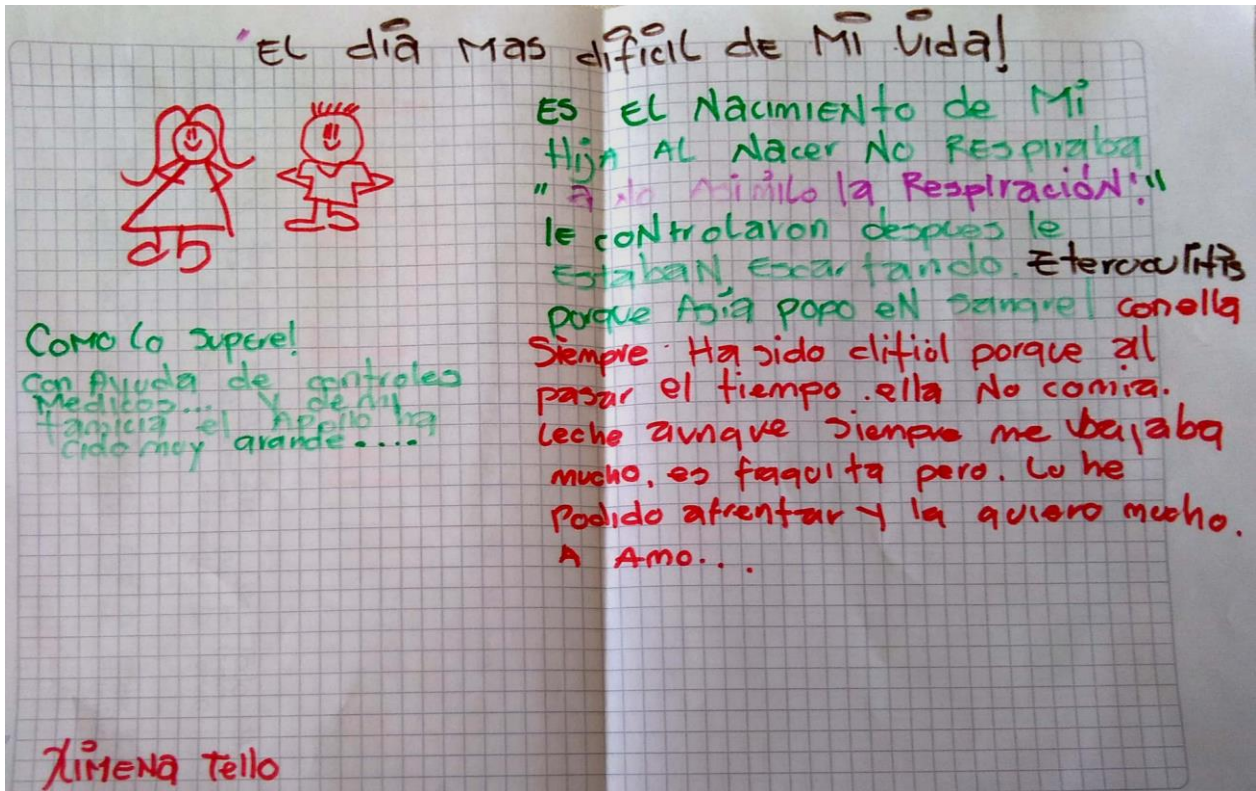 "EL día Mas dificil de Mi Vida!
ES EL Nacimiento de Mi
Hija AL Nacer No Respiraba
" Asimilo la Respiración!"
le controlaron despues le
Estaban Escartando.
porque Asía popo en sangre! con ella
Siempre Ha sido difiil porque al
pasar el tiempo. ella No comia.
Leche aunque siempre me bajaba
mucho, es flaquita pero. Lo he
Podido afrentar y la quiero mucho.
A Amo...
Como lo Supere!
con Ayuda de controles
Medicos... y de mi
familia el Apollo ha
Cido muy grande....
Ximena Tello